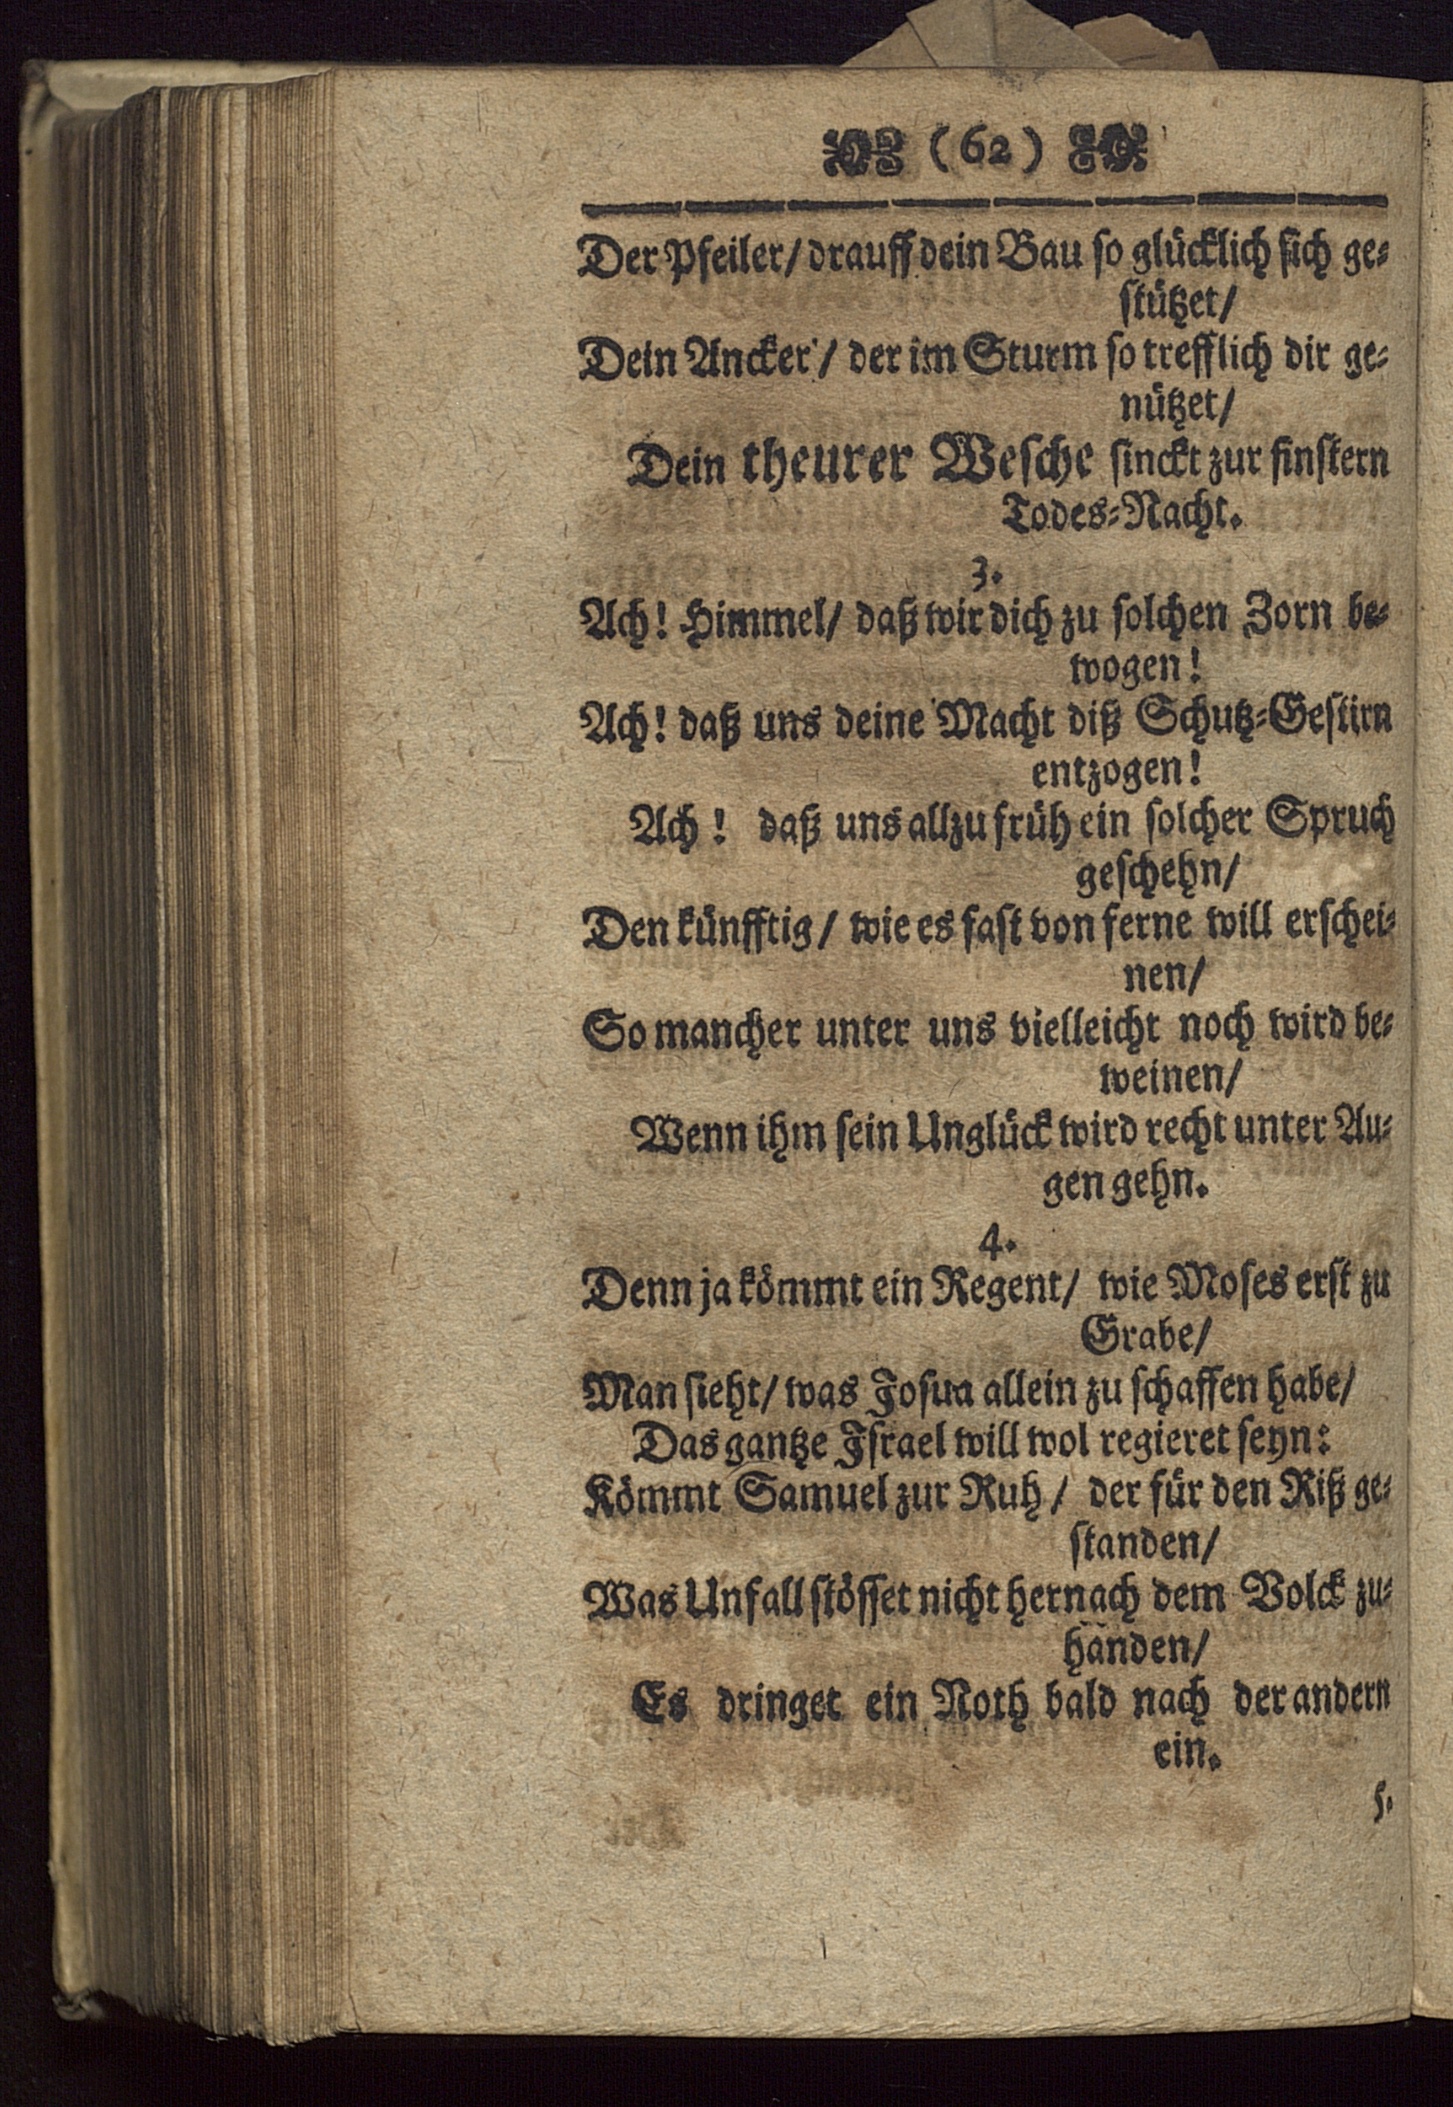 (62)
Der Pfeiler/ drauff dein Bau so glücklich sich ge-
stützet/
Dein Ancker/ der im Sturm so trefflich dir ge-
nützet/
Dein theurer Wesche sinckt zur finstern
Todes-Nacht.
3.
Ach! Himmel/ daß wir dich zu solchen Zorn be-
wogen!
Ach! daß uns deine Macht diß Schutz-Gestirn
entzogen!
Ach! daß uns allzu früh ein solcher Spruch
geschehn/
Den künfftig/ wie es fast von ferne will erschei-
nen/
So mancher unter uns vielleicht noch wird be-
weinen/
Wenn ihm sein Unglück wird recht unter Au-
gen gehn.
4.
Denn ja kömmt ein Regent/ wie Moses erst zu
Grabe/
Man sieht/ was Josua allein zu schaffen habe/
Das gantze Israel will wol regieret seyn:
Kömmt Samuel zur Ruh/ der für den Riß ge-
standen/
Was Unfall stösset nicht hernach dem Volck zu-
handen/
Es dringet ein Noth bald nach der andern
ein.
5.